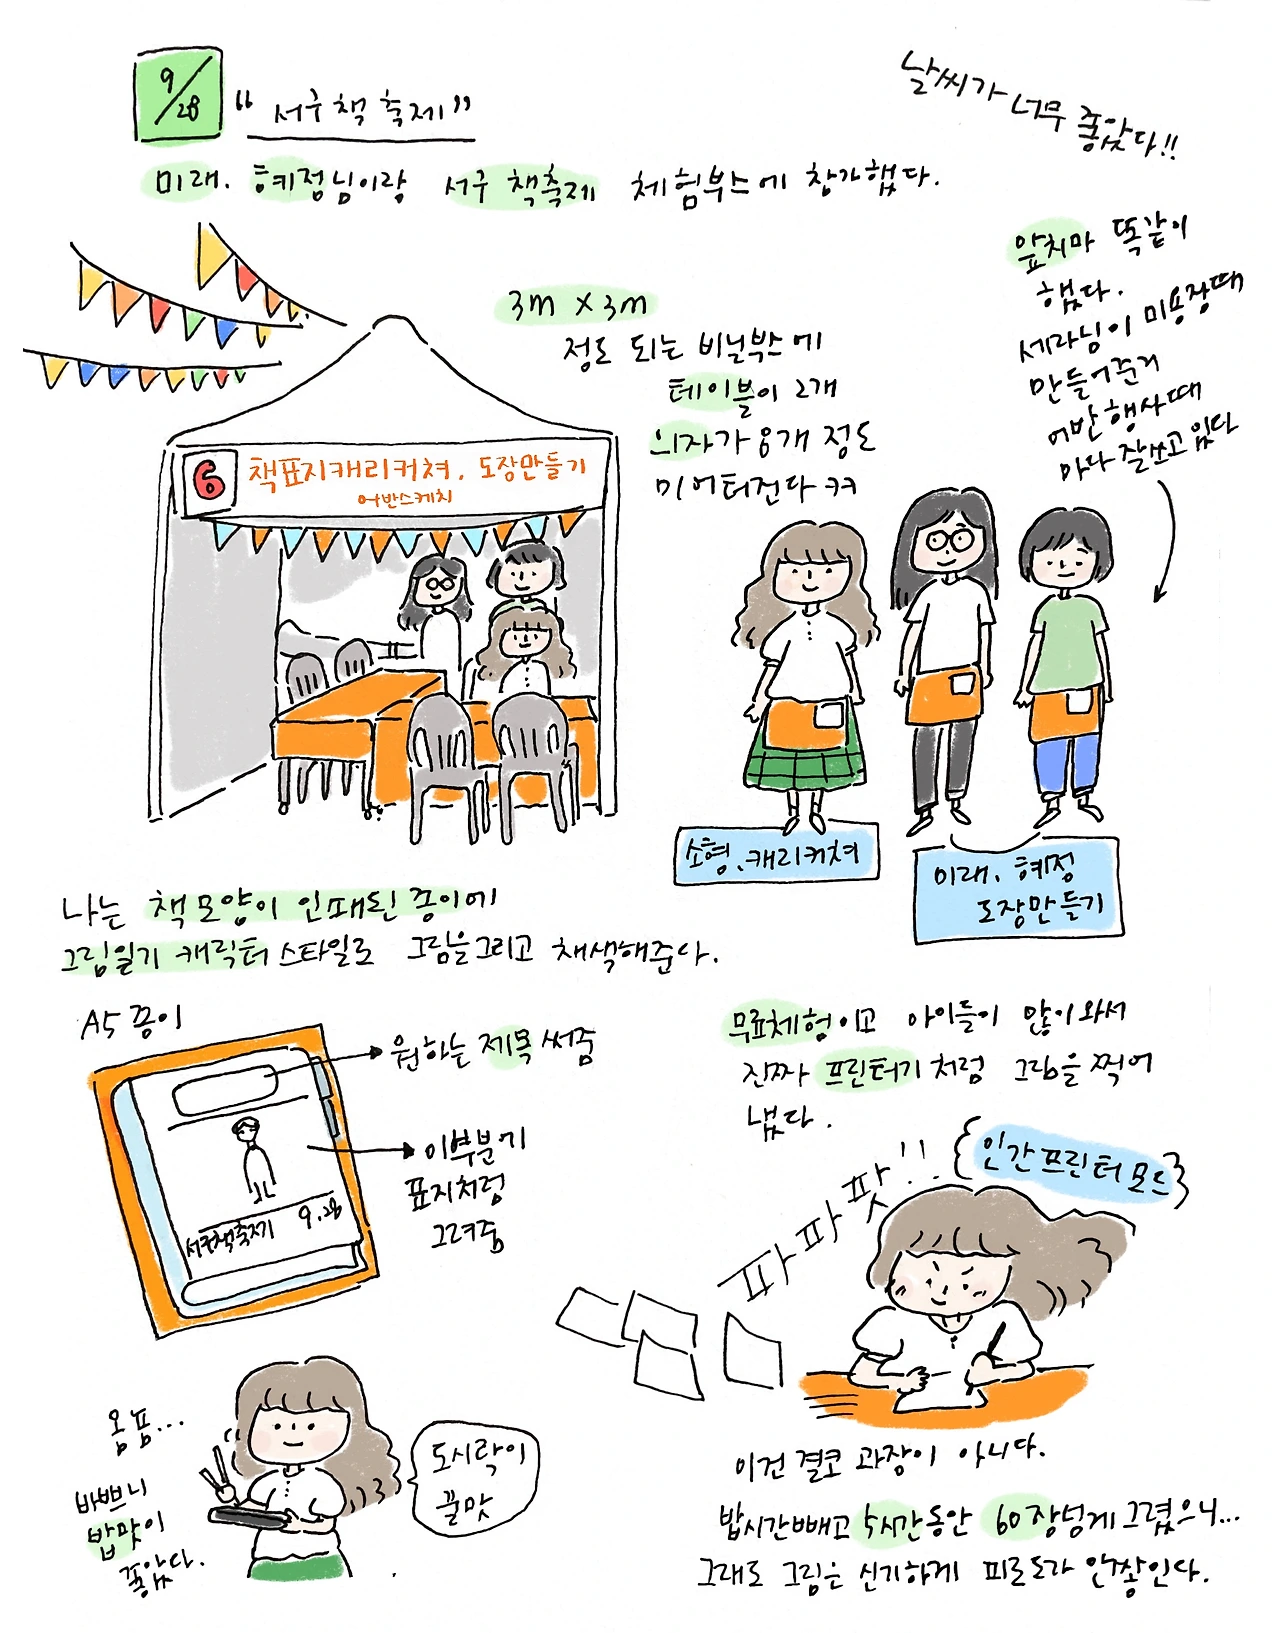 9/28
“서구 책 축제”
날씨가 너무 좋았다!!
미래. 혜정님이랑 서구 책축제 체험부스에 참가했다.
3m x 3m
정도 되는 비닐부스에
테이블이 2개
의자가 8개 정도
미어터진다 ㅋㅋ
앞치마 똑같이
했다.
세라님이 미용장때
만들어준거
어반 행사때
마다 잘쓰고 있다
6 책표지캐리커쳐. 도장만들기
어반스케치
소형. 캐리커쳐
미래. 혜정
도장만들기
나는 책 모양이 인쇄된 종이에
그림일기 캐릭터 스타일로 그림을 그리고 채색해준다.
A5 종이
원하는 제목 써줌
이부분이
표지처럼
그려줌
서구책축제 9.28
무료체험이고 아이들이 많이 와서
진짜 프린터기처럼 그림을 찍어
냈다.
파파팟!!
인간프린터모드
이건 결코 과장이 아니다.
밥시간빼고 5시간동안 60장넘게 그렸으니...
그래도 그림은 신기하게 피로도가 안쌓인다.
옴뇸...
바쁘니
밥맛이
좋았다.
도시락이
꿀맛